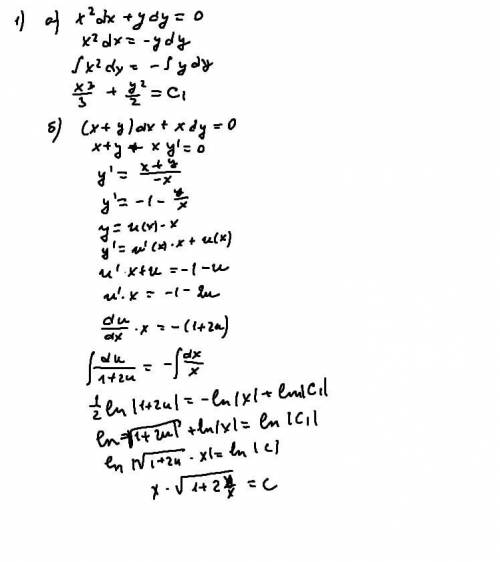 1) a) x²dx + y dy = 0
x² dx = -y dy
∫x² dy = -∫y dy
x³/3 + y²/2 = C₁
б) (x+y)dx + x dy = 0
x+y + x y' = 0
y' = (x+y)/(-x)
y' = -1 - y/x
y = u(x)·x
y' = u'(x)·x + u(x)
u'·x+u = -1-u
u'·x = -1-2u
du/dx · x = -(1+2u)
∫du/(1+2u) = -∫dx/x
1/2 ln|1+2u| = -ln|x| + ln|C₁|
ln √|1+2u| + ln|x| = ln|C₁|
ln |√(1+2u) · x| = ln |C|
x·√(1+2y/x) = C